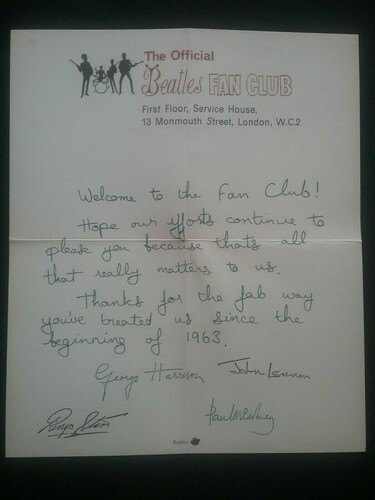 The Official
Beatles FAN CLUB
First Floor, Service House,
13 Monmouth Street, London, W.C.2
Welcome to the Fan Club!
Hope our efforts continue to
please you because thats all
that really matters to us.
Thanks for the fab way
you've treated us since the
beginning of 1963.
George Harrison John Lennon
Ringo Starr Paul McCartney